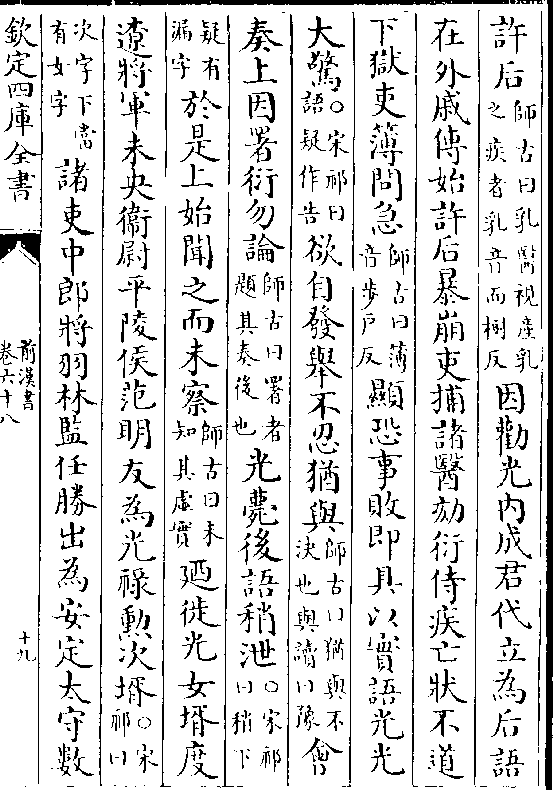 許后師古曰乳醫視產乳之疾者乳音而樹反因勸光内成君代立為后語
在外戚傳始許后暴崩吏捕諸醫劾衍侍疾亡狀不道
下獄吏簿問急師古曰簿音步戶反顯恐事敗即具以實語光光
大驚○宋祁曰語疑作告欲自發舉不忍猶與師古曰猶與不決也與讀曰豫㑹
奏上因署衍勿論師古曰署者題其奏後也光薨後語稍泄○宋祁曰稍下
疑有漏字於是上始聞之而未察師古曰未知其虛實廼徙光女壻度
遼將軍未央衞尉平陵侯范明友為光祿勲次壻○宋祁曰
次字下當有女字諸吏中郎將羽林監任勝出為安定太守數
欽定四庫全書
前漢書
卷六十八
十九